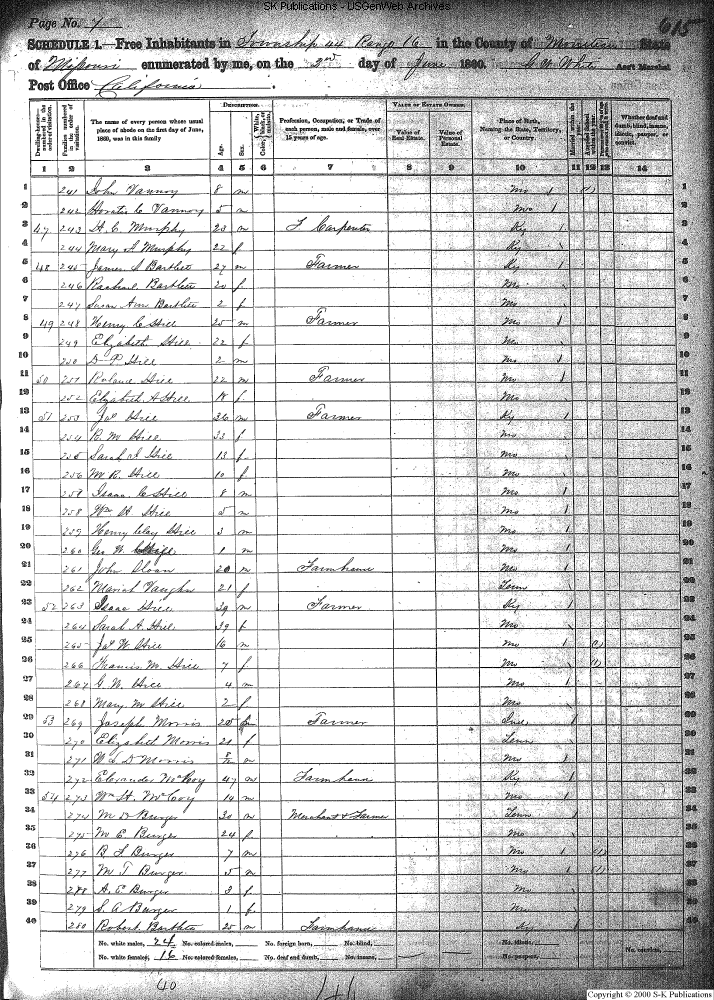 SK Publications - USGenWeb Archives
Page No. 7
615
SCHEDULE 1.—Free Inhabitants in Township 44 Range 16 in the County of Moniteau State
of Missouri enumerated by me, on the 2nd day of June 1860. White Ass't Marshal
Post Office California
Dwelling-houses numbered in the order of visitation.
Families numbered in the order of visitation.
The name of every person whose usual place of abode on the first day of June, 1860, was in this family
DESCRIPTION.
Age.
Sex.
Color
Profession, Occupation, or Trade of each person, male and female, over 15 years of age.
VALUE OF ESTATE OWNED.
Value of Real Estate.
Value of Personal Estate.
Place of Birth, Naming the State, Territory, or Country.
Whether deaf and dumb, blind, insane, idiotic, pauper, or convict.
1 2 3 4 5 6 7 8 9 10 11 12 13 14
1 241 John Vannoy 8 m Mo 1
2 242 Horatio C Vannoy 5 m Mo 2
3 47 243 H. C. Murphy 23 m Carpenter Ky 3
4 244 Mary A Murphy 22 f Ky 4
5 48 245 James S Bartlett 27 m Farmer Ky 5
6 246 Rachael Bartlett 20 f Mo 6
7 247 Susan Ann Bartlett 2 f Mo 7
8 49 248 Henry C Hill 25 m Farmer Mo 8
9 249 Elizabeth Hill 22 f Mo 9
10 250 D P Hill 2 m Mo 10
11 50 251 Roland Hill 22 m Farmer Mo 11
12 252 Elizabeth A Hill 18 f Mo 12
13 51 253 Jas Hill 36 m Farmer Ky 13
14 254 R. M Hill 33 f Mo 14
15 255 Sarah J Hill 13 f Mo 15
16 256 M R. Hill 10 f Mo 16
17 258 Isaac C Hill 8 m Mo 17
18 258 Wm H Hill 5 m Mo 18
19 259 Henry Clay Hill 3 m Mo 19
20 260 Geo W Hill 1 m Mo 20
21 261 John Sloan 20 m Farmhand Mo 21
22 262 Mariah Vaughn 21 f Tenn 22
23 52 263 Isaac Hill 39 m Farmer Ky 23
24 264 Sarah A. Hill 39 f Mo 24
25 265 Jas W. Hill 16 m Mo 25
26 266 M. Hill 7 f Mo 26
27 267 G N. Hill 4 m Mo 27
28 268 Mary M Hill 2 f Mo 28
29 53 269 Joseph Morris 25 Farmer Ind 29
30 270 Elizabeth Morris 21 f Tenn 30
31 271 D Morris m Mo 31
32 272 Elexander McCoy 47 m Farmhand Ky 32
33 54 273 Wm H. McCoy 14 m Mo 33
34 274 M Burger 30 m Merchant & Farmer Tenn 34
35 275 M E Burger 24 f Mo 35
36 276 B Burger 7 m Mo 36
37 277 M T Burger 5 m Mo 37
38 288 A. E. Burger 3 f Mo 38
39 279 S. A Burger 1 f Mo 39
40 280 Robert Bartlett 25 m Farmhand Ky 40
No. white males, 24 No. colored males, No. foreign born, No. blind, No. idiotic,
No. white females, 16 No. colored females, No. deaf and dumb, No. insane, No. paupers, No. convicts,
40
Copyright © 2000 S-K Publications